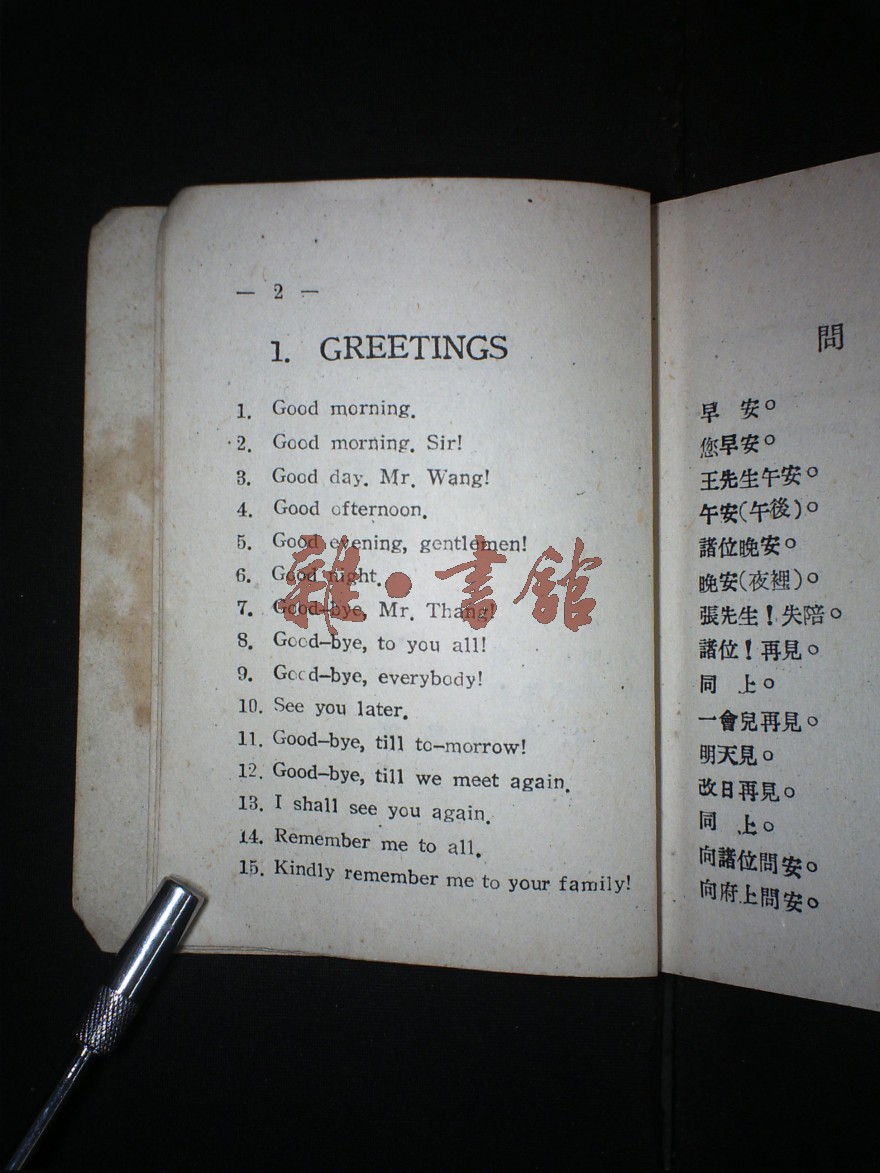 — 2 —
1. GREETINGS
1. Good morning.
2. Good morning. Sir!
3. Good day. Mr. Wang!
4. Good ofternoon.
5. Good evening, gentlemen!
6. Good night.
7. Good-bye, Mr. Thang!
8. Good-bye, to you all!
9. Good-bye, everybody!
10. See you later.
11. Good-bye, till to-morrow!
12. Good-bye, till we meet again.
13. I shall see you again.
14. Remember me to all.
15. Kindly remember me to your family!
雜·書館
問
早 安。
您早安。
王先生午安。
午安(午後)。
諸位晚安。
晚安(夜裡)。
張先生!失陪。
諸位!再見。
同 上。
一會兒再見。
明天見。
改日再見。
同 上。
向諸位問安。
向府上問安。